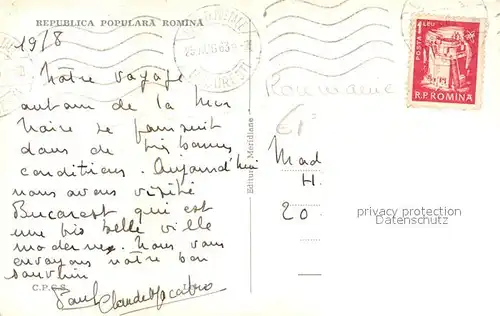 REPUBLICA POPULARA ROMINA
19/8
Notre voyage
autour de la Mer
Noire se poursuit
dans de très bonnes
conditions. Aujourd'hui
nous avons visité
Bucarest qui est
une très belle ville
moderne. Nous vous
envoyons notre bon
souvenir
Paul
C.P.C.S.
Editura Meridiane
Roumanie
POSTA
1 LEU
R.P. ROMINA
Mad
H.
20
privacy protection
Datenschutz